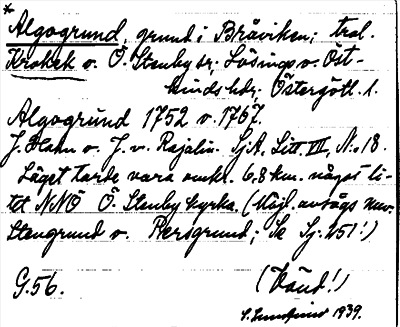 *
Algogrund, grund i Bråviken; trol.
Krokek o. Ö. Stenby sr; Lösings o. Öst-
kinds hdr; Östergötl. l.
Algogrund 1752 o. 1767.
J. Hahn o. J. v. Rajalin. Sj.A, Litt. III, N:o 18.
Läget torde vara omkr. 6.8 km. något li-
tet NNÖ Ö. Stenby kyrka. (Möjl. avsågs nuv.
Stengrund o. Persgrund; Se Sj. 451!)
G. 56. (Vänd!)
1939.